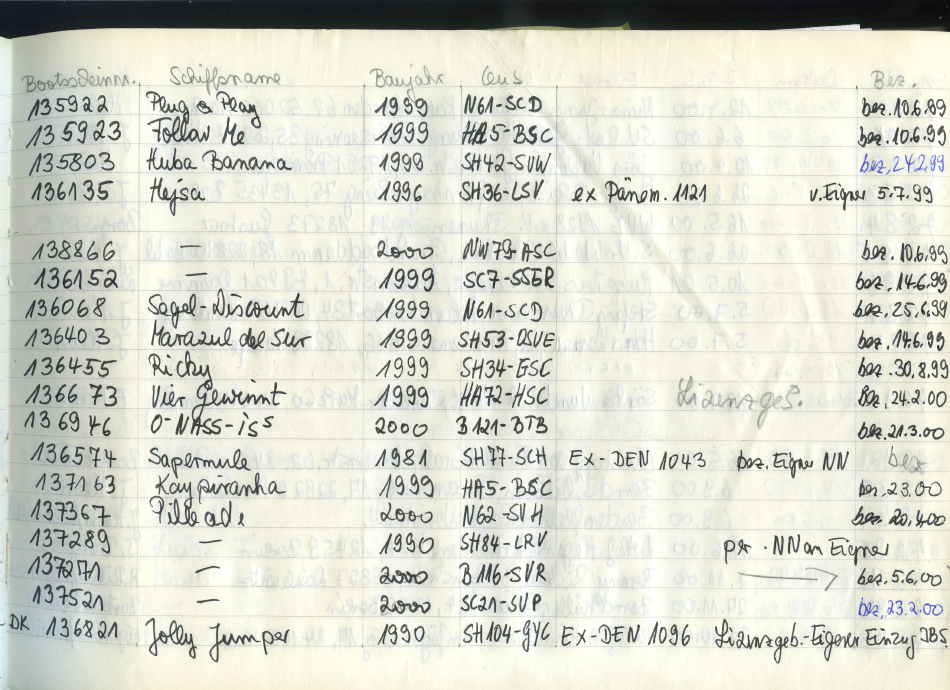 Schiffsname Baujahr Bez.
135922 Plug & Play 1999 N61-SCD bez. 10.6.99
135923 Follow Me 1999 HA5-BSC bez. 10.6.99
135803 Huba Banana 1999 SH42-SVW bez. 24.2.99
136135 Hejsa 1996 SH36-LSV ex Dänem. 1121 v. Eigner 5.7.99
138866 — 2000 NW79-ASC bez. 10.6.99
136152 — 1999 SC7-SSER bez. 14.6.99
136068 Segel-Discount 1999 N61-SCD bez. 25.6.99
136403 Marazul del Sur 1999 SH53-OSVE bez. 14.6.99
136455 Ricky 1999 SH34-ESC bez. 30.8.99
136673 Vier Gewinnt 1999 HA72-HSC Lizenzgeb. Bez. 24.2.00
136946 O-NASS-is 2000 B121-BTB bez. 21.3.00
136574 Sapermule 1981 SH77-SCH EX-DEN 1043 bez. Eigner NN bez
137163 Kaypiranha 1999 HA5-BSC bez. 23.00
137367 2000 N62-SVH bez. 20.4.00
137289 — 1990 SH84-LRV per NN an Eigner
137271 — 2000 B116-SVR bez. 5.6.00
137521 — 2000 SC21-SVP bez. 23.2.00
DK 136821 Jolly Jumper 1990 SH104-GYC EX-DEN 1096 Lizenzgeb.-Eigener Einzug DBS